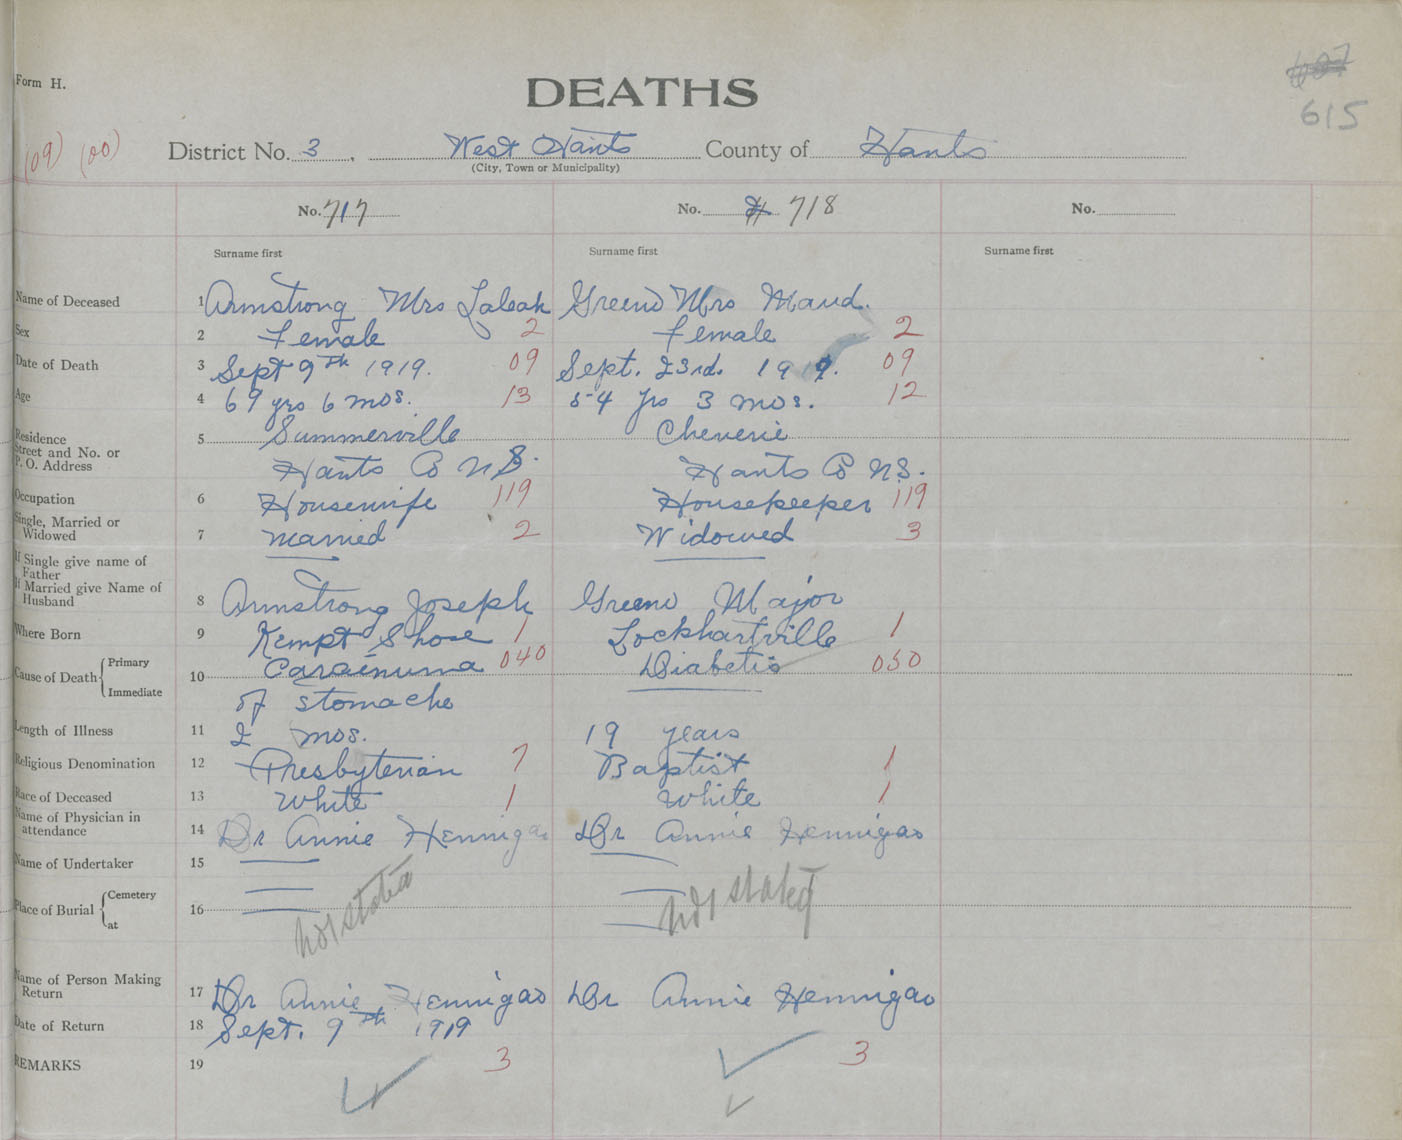 Form H.
DEATHS
615
(09) (00)
District No. 3, West Hants County of Hants
(City, Town or Municipality)
No. 717 No. 718 No.
Surname first Surname first Surname first
Name of Deceased 1 Armstrong Mrs Greeno Mrs Maud.
Sex 2 Female 2 Female 2
Date of Death 3 Sept 9th 1919. 09 Sept. 23rd. 1919. 09
Age 4 69 yrs 6 mos. 13 54 yrs 3 mos. 12
Residence 5 Summerville Cheverie
Street and No. or
P. O. Address Hants Co N.S. Hants Co N.S.
Occupation 6 Housewife 119 Housekeeper 119
Single, Married or
Widowed 7 Married 2 Widowed 3
If Single give name of
Father
If Married give Name of
Husband 8 Armstrong Joseph Greeno Major
Where Born 9 Kempt Shore 1 Lockhartville 1
Cause of Death Primary 10 Carcinuma 040 Diabetis 050
Immediate of stomache
Length of Illness 11 2 mos. 19 years
Religious Denomination 12 Presbyterian 7 Baptist 1
Race of Deceased 13 White 1 White 1
Name of Physician in
attendance 14 Dr Annie Hennigar Dr Annie Hennigar
Name of Undertaker 15
Place of Burial Cemetery 16 not stated not stated
at
Name of Person Making
Return 17 Dr Annie Hennigar Dr Annie Hennigar
Date of Return 18 Sept. 9th 1919
REMARKS 19 3 3